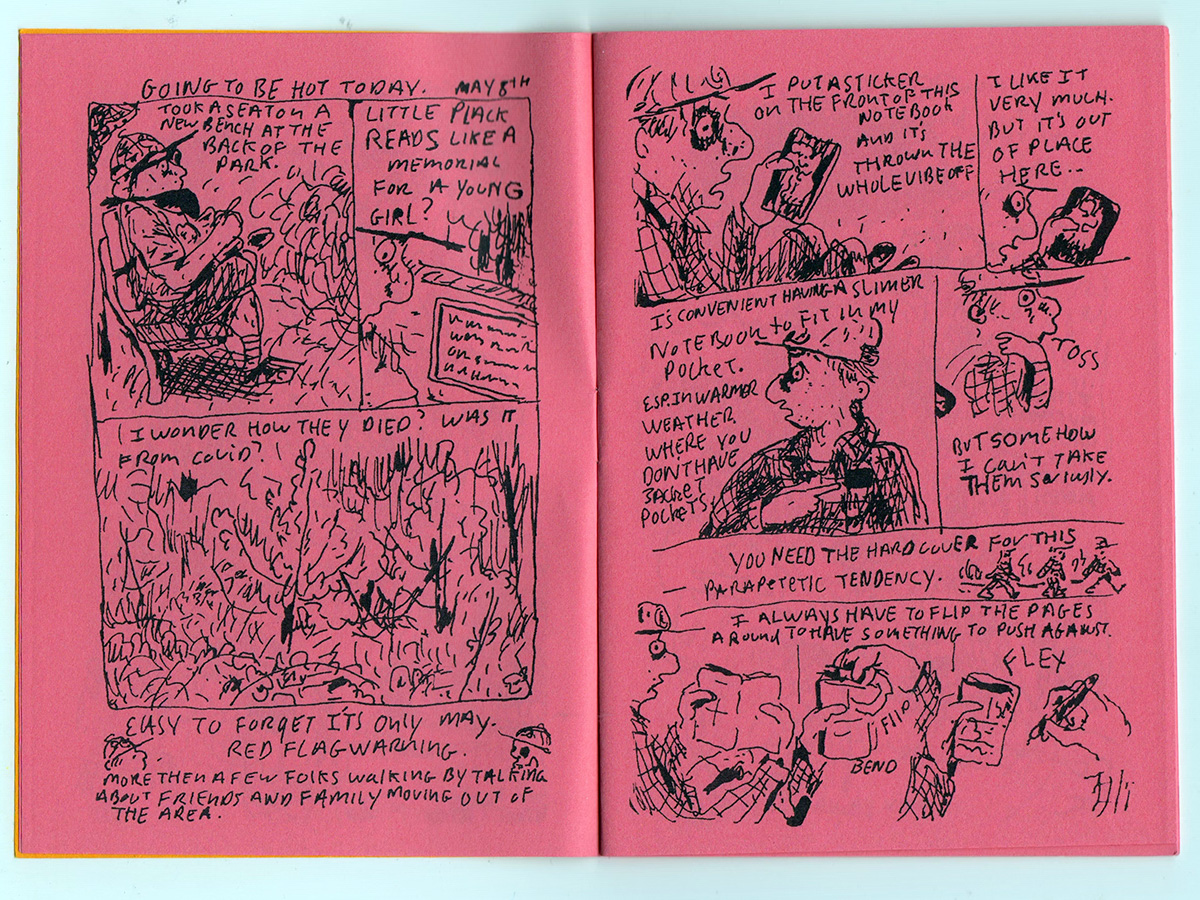 GOING TO BE HOT TODAY. MAY 8TH
TOOK A SEAT ON A
NEW BENCH AT THE
BACK OF THE
PARK.
LITTLE PLACK
READS LIKE A
MEMORIAL
FOR A YOUNG
GIRL?
I WONDER HOW THEY DIED? WAS IT
FROM COVID?
EASY TO FORGET IT'S ONLY MAY.
RED FLAG WARNING.
MORE THEN A FEW FOLKS WALKING BY TALKING
ABOUT FRIENDS AND FAMILY MOVING OUT OF
THE AREA.
I PUT A STICKER
ON THE FRONT OF THIS
NOTEBOOK
AND IT'S
THROWN THE
WHOLE VIBE OFF
I LIKE IT
VERY MUCH.
BUT IT'S OUT
OF PLACE
HERE...
IS CONVENIENT HAVING A SLIMER
NOTEBOOK TO FIT IN MY
POCKET.
ESP. IN WARMER
WEATHER.
WHERE YOU
DON'T HAVE
JACKET
POCKETS
TOSS
BUT SOMEHOW
I CAN'T TAKE
THEM SERIOUSLY.
YOU NEED THE HARDCOVER FOR THIS
PARAPETETIC TENDENCY.
I ALWAYS HAVE TO FLIP THE PAGES
AROUND TO HAVE SOMETHING TO PUSH AGAINST.
FLIP
BEND
FLEX